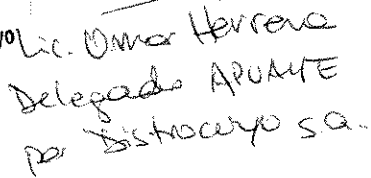 Lic. Omar Herrera
Delegado APUAYE
por Distrocuyo S.A.